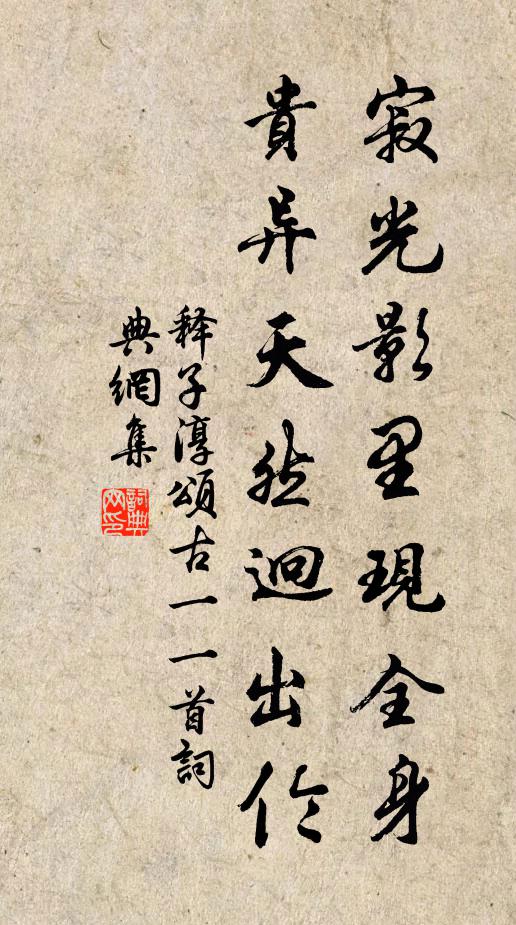 寂光影里現全身
貴异天然迥出伦
释子淳頌古一一首詞
典網集
詞典网印